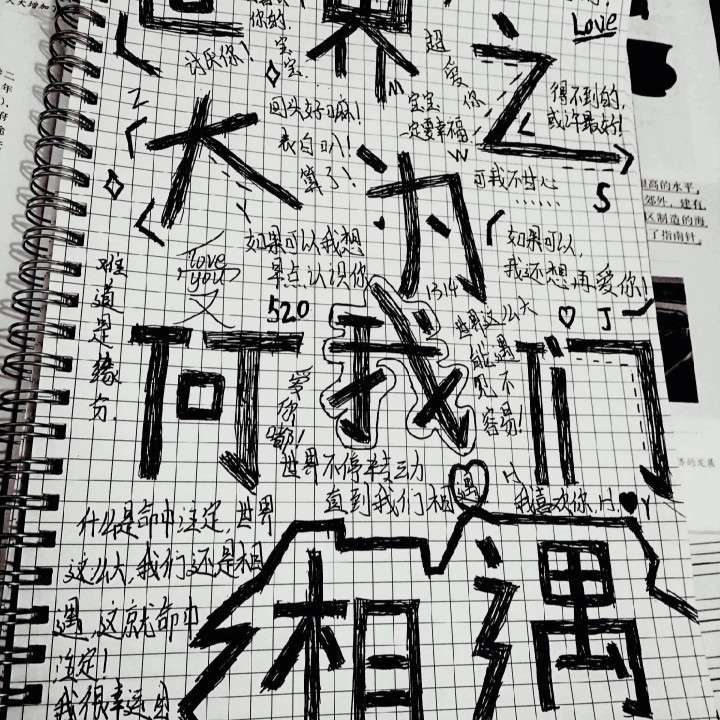 世界之
Love
你的
宝
宝
讨厌你!
超
爱
你
M
宝宝
一定要幸福
得不到的,
或许最好!
Z
回头好吗!
表白叭!
算了!
大为
W
可我不甘心
......
S
Y
I love
you
又
如果可以我想
早点认识你
520
1314
如果可以,
我还想再爱你!
难
道
是
缘
分
世界这么大
能遇
见不
容易!
J
何我们
爱
你
世界不停转动
直到我们相遇
H
我喜欢你.H
Y
什么是命中注定,世界
这么大,我们还是相
遇,这就命中
注定!
我很幸运
相遇
过高的水平,
郊外,建有
区制造的海
了指南针,